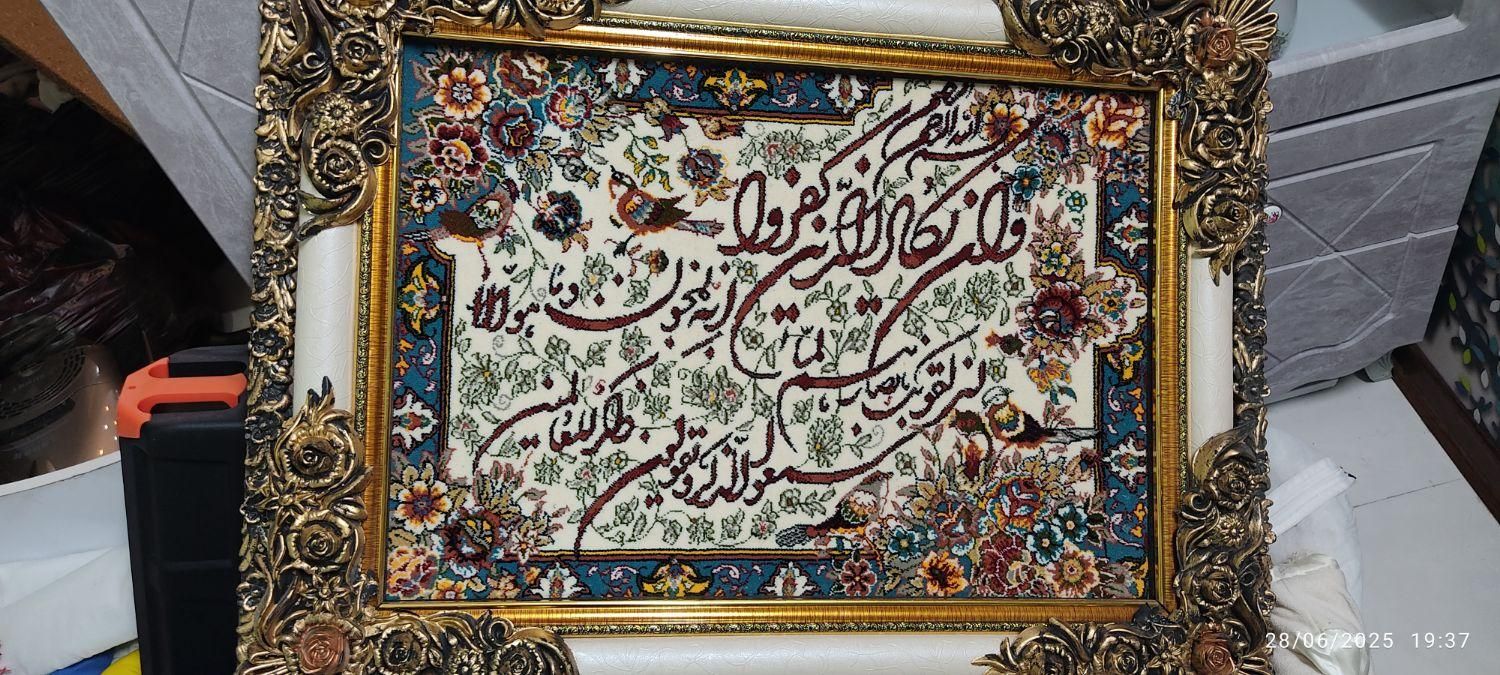 بسم الله الرحمن الرحیم
وان یکاد الذین کفروا
لیزلقونک بابصارهم لما
سمعوا الذکر و یقولون
انه لمجنون و ما هو الا
ذکر للعالمین
28/06/2025 19:37